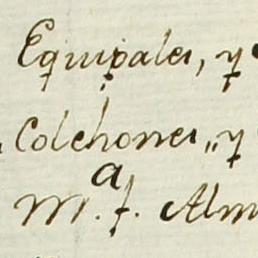 Equipales, y
Colchones, y
M.ª f. Alm